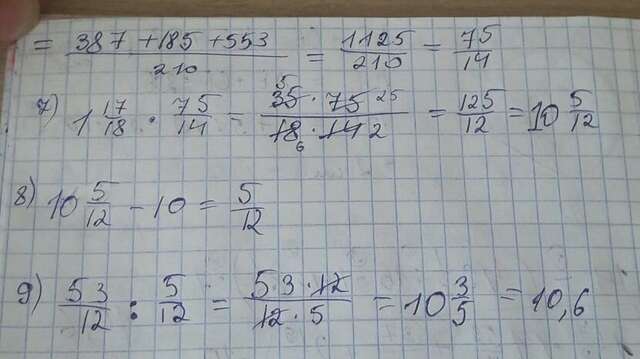 = (387 + 185 + 553)/210 = 1125/210 = 75/14
7) 1 17/18 · 75/14 = (35 5 · 75 25)/(18 6 · 14 2) = 125/12 = 10 5/12
8) 10 5/12 - 10 = 5/12
9) 53/12 : 5/12 = (53 · 12)/(12 · 5) = 10 3/5 = 10,6